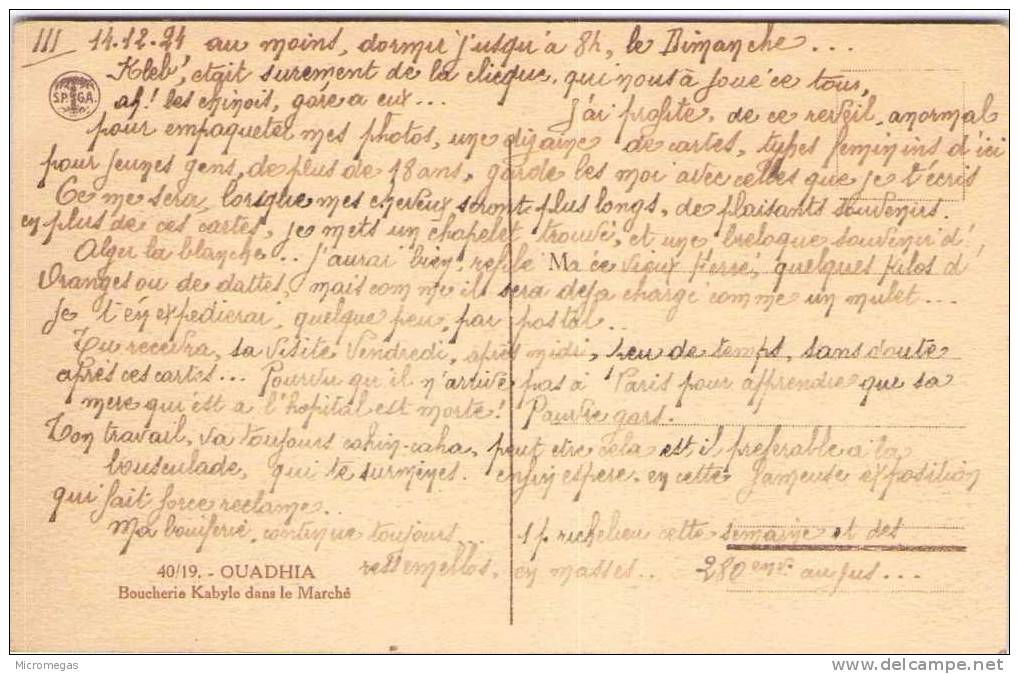 III 14.12.24 au moins, dormir jusqu'à 8h, le Dimanche...
Kleb', etait surement de la clicque, qui nous à joué ce tour,
S.P. G.A.
ah! les chinois, gare a eux... J'ai profité, de ce reveil, anormal
pour empaqueter mes photos, une dizaine de cartes, types feminins d'ici
pour jeunes gens, de plus de 18 ans, garde les moi avec celles que je t'écris
Ce me sera, lorsque mes cheveux seront plus longs, de plaisants souvenirs.
en plus de ces cartes, je mets un chapelet trouvé, et une breloque souvenir d'
Alger la blanche.. j'aurai bien, refilé à ce vieux Ferré, quelques kilos d'
Oranges ou de dattes, mais comme il sera deja chargé comme un mulet...
je t'en expedierai, quelque peu, par postal..
Tu recevra, sa visite Vendredi, après midi, peu de temps, sans doute
après ces cartes... Pourvu qu'il n'arrive pas à Paris pour apprendre que sa
mere qui est a l'hopital est morte! Pauvre gars.
Ton travail, va toujours cahin-caha, peut etre cela est il preferable a la
bousculade, qui te surmènes. enfin espere, en cette fameuse exposition
qui fait force reclame..
Ma bouiferie, continue toujours... 1 p. richelieu cette semaine et des
ressemelles, en masses.. 280 env. au jus...
40/19. - OUADHIA
Boucherie Kabyle dans le Marché
Micromegas
delcampe.net